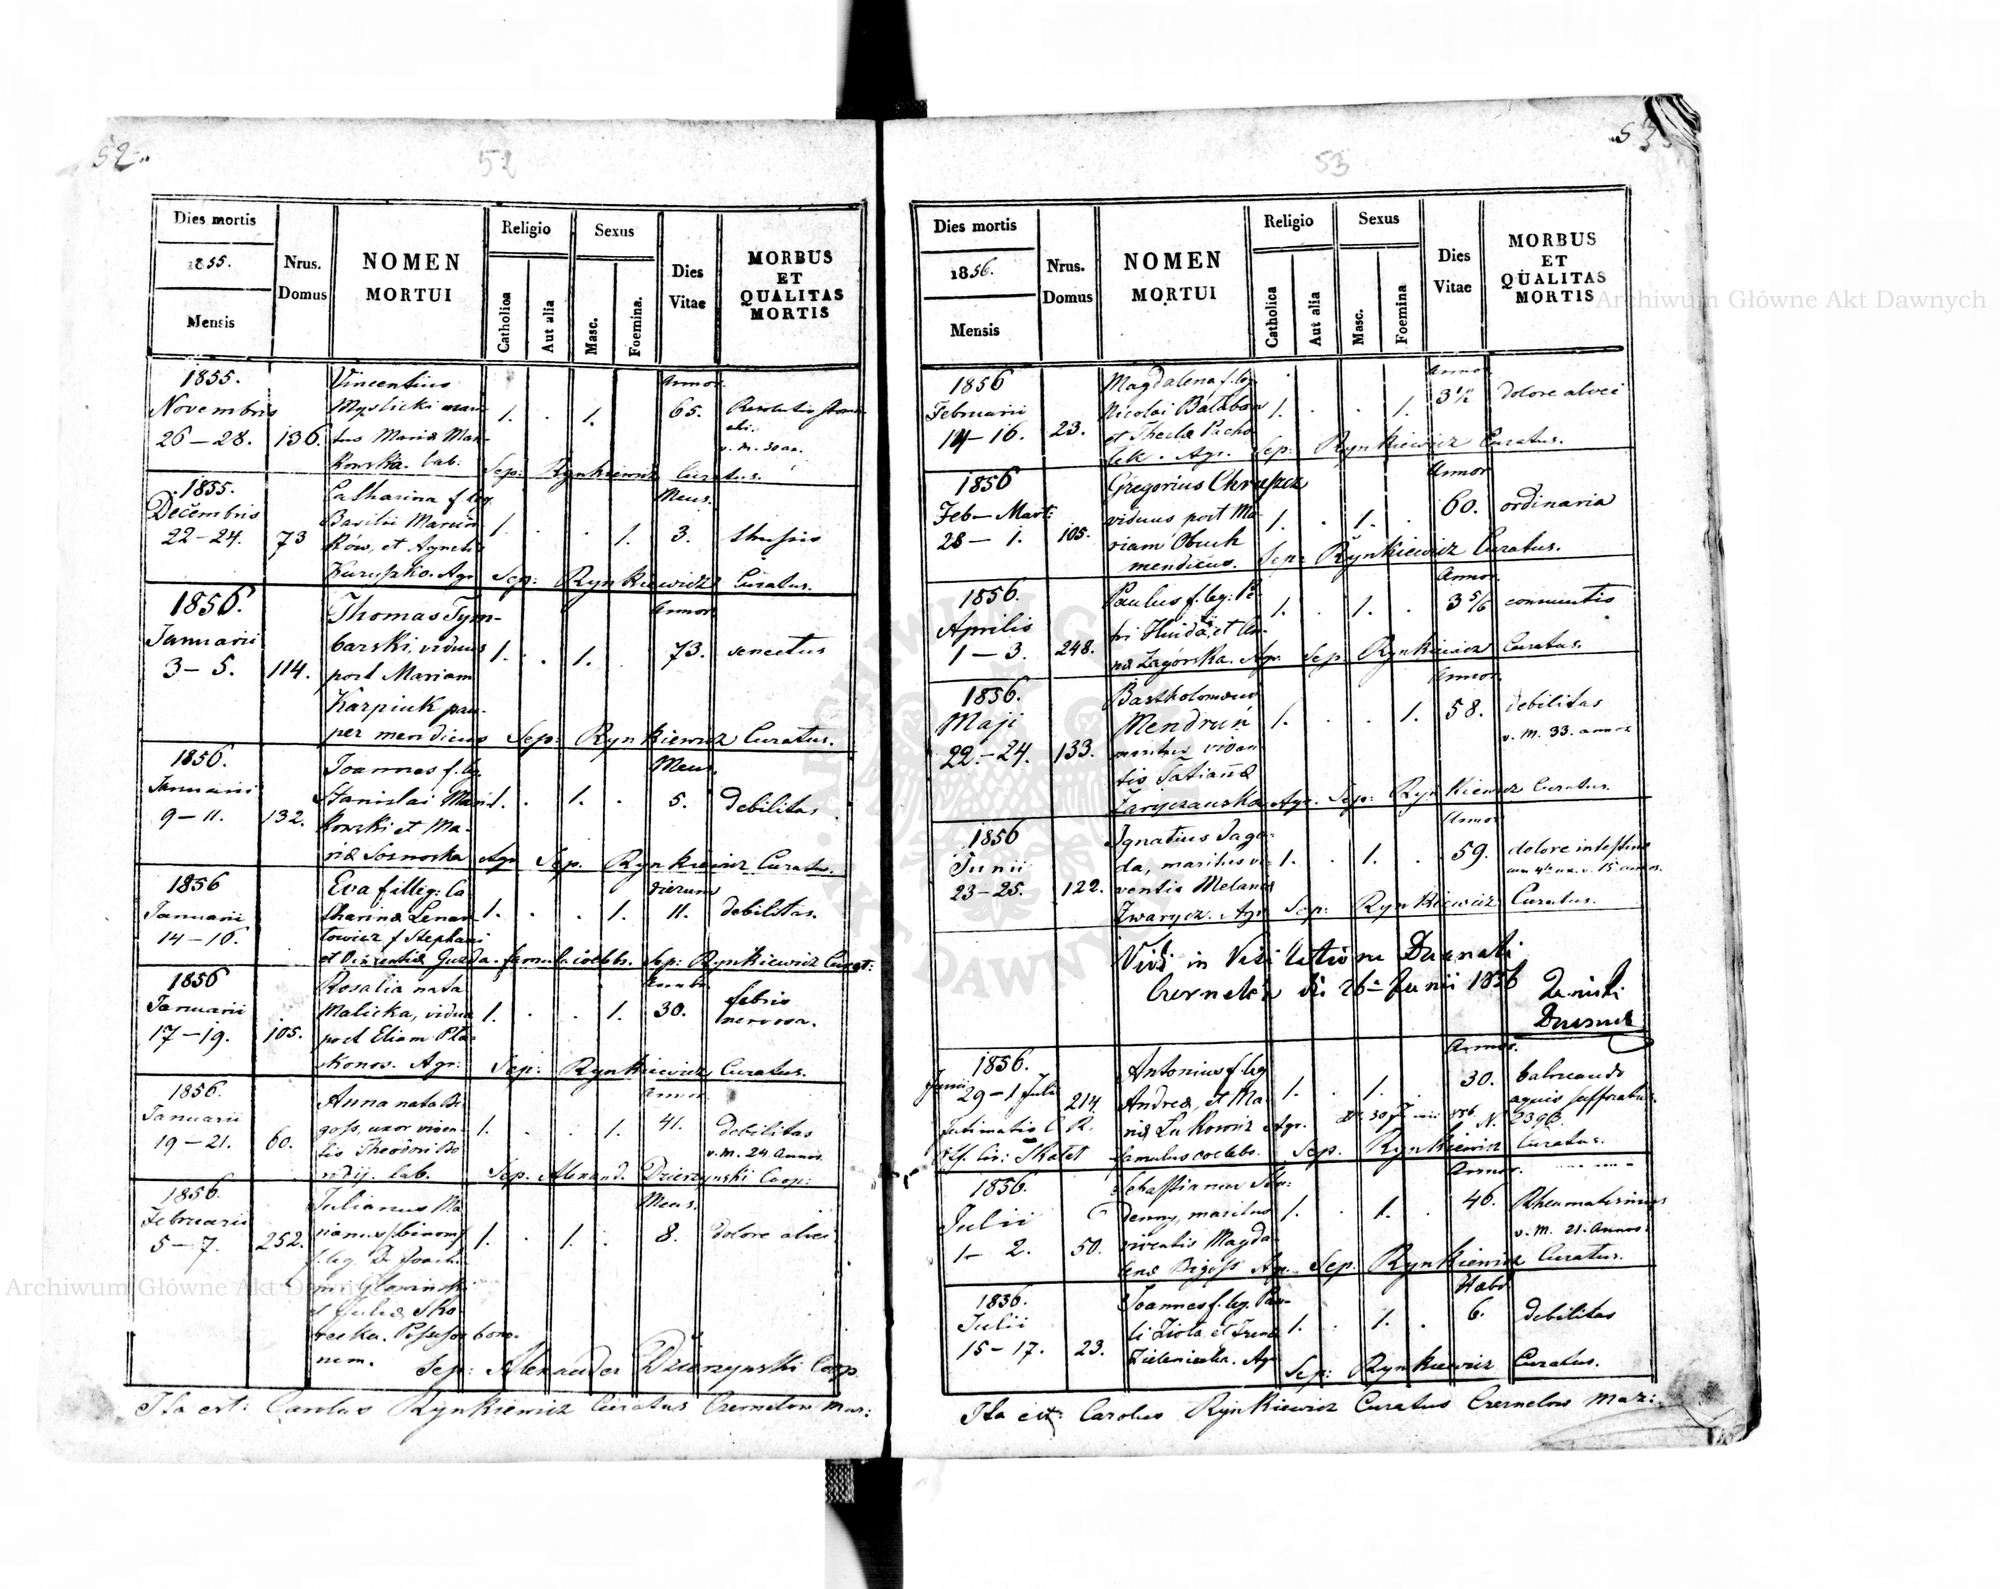 52.
52
Dies mortis
1855.
Mensis
Nrus.
Domus
NOMEN
MORTUI
Religio
Catholica
Aut alia
Sexus
Masc.
Foemina.
Dies
Vitae
MORBUS
ET
QUALITAS
MORTIS
1855.
Novembris
26-28. 136.
Vincentius
Myslicki mari-
tus Mariæ Mar-
kowska. Lab:
1. . 1.
Annor.
65.
v. m. 30 an.
Sep: Rynkiewicz Curatus.
1855.
Decembris
22-24. 73
Catharina f. leg.
Basilii
ków, et Agnetis
Kuryszko. Agr.
1. . . 1.
Mens.
3.
Sep: Rynkiewicz Curatus.
1856.
Januarii
3-5. 114.
Thomas Tym-
barski, viduus
post Mariam
Karpiuk pau-
per mendicus
1. . 1.
Annor.
73. senectus
Sep: Rynkiewicz Curatus.
1856.
Januarii
9-11. 132.
Joannes f. leg.
Stanislai
kowski et Ma-
riæ Sosnoska Agr.
1. . 1. .
Mens.
5. debilitas
Sep. Rynkiewicz Curatus.
1856
Januarii
14-16.
Eva f. illeg: Ca-
tharinæ Lenar-
towicz f. Stephani
et Vincentiæ Guzda. famula coelebs.
1. . . 1.
dierum
11. debilitas.
Sep: Rynkiewicz Curat:
1856
Januarii
17-19. 105.
Rosalia nata
Malicka, vidua
post Eliam
Agr:
1. . . 1.
30. febris
nervosa.
Sep: Rynkiewicz Curatus.
1856.
Januarii
19-21. 60.
Anna nata Bi-
goss, uxor viven-
tis Theodori
Lab.
1. . . 1.
Annor.
41. debilitas
v. m. 24 Annos.
Sep. Alexand. Dzierzynski Coop:
1856.
Februarii
5-7. 252.
Julianus Ma-
rianus binom.
f. leg. D. Joach-
imi Glowinski
et Juliæ Sko-
Possessor bono-
rum.
1. . 1. .
Mens.
8. dolore alvei
Sep: Alexander Dzierzynski Coop.
Ita est: Carolus Rynkiewicz Curatus Czernelow Maz:
53
53
Dies mortis
1856.
Mensis
Nrus.
Domus
NOMEN
MORTUI
Religio
Catholica
Aut alia
Sexus
Masc.
Foemina
Dies
Vitae
MORBUS
ET
QUALITAS
MORTIS
1856
Februarii
14-16. 23.
Magdalena f. leg.
Nicolai Balaban
et Theclæ Pacho-
lek. Agr.
1. . . 1.
Annor.
3½ dolore alvei
Sep: Rynkiewicz Curatus.
1856
Feb- Mart:
28-1. 105.
Gregorius Chrupcz
viduus post Ma-
riam Obuch
mendicus.
1. . 1. .
Annor.
60. ordinaria
Sep: Rynkiewicz Curatus.
1856.
Aprilis
1-3. 248.
Paulus f. leg: Pe-
tri Huida, et An-
næ Zagórska. Agr.
1. . 1. .
Annor.
3 5/6
Sep. Rynkiewicz Curatus.
1856.
Maji
22-24. 133.
Bartholomeus
Mendruń
maritus viven-
tis Tatiannæ
Agr.
1. . . 1.
Annor.
58. debilitas
v. m. 33. annos
Sep: Rynkiewicz Curatus.
1856
Junii
23-25. 122.
Ignatius Jago-
da, maritus vi-
ventis Melaniæ
Zwarycz. Agr.
1. . 1. .
Annor.
59. dolore intestino
Sep: Rynkiewicz Curatus.
Vidi in Visitatione Decanali
die 26 Junii 1856
1856.
Junii
29-1 Juli
214
Antonius f. leg
Andreæ, et Ma-
riæ Lukowicz Agr.
famulus coelebs.
1. . 1. .
Annor.
30. balneando
aquis suffocatus
N. 2396.
Sep. Rynkiewicz Curatus.
1856.
Julii
1-2. 50.
maritus
viventis Magda-
lenæ Bigoss Agr.
1. . 1. .
Annor.
46. Rheumatismus
v. m. 21. Annos.
Sep: Rynkiewicz Curatus.
1856.
Julii
15-17. 23.
Joannes f. leg. Pau-
li Ziola, et Irenæ
Agr
1. . 1. .
6. debilitas
Sep: Rynkiewicz Curatus.
Ita est: Carolus Rynkiewicz Curatus Czernelow Maz:
Archiwum Główne Akt Dawnych
Archiwum Główne Akt Dawnych